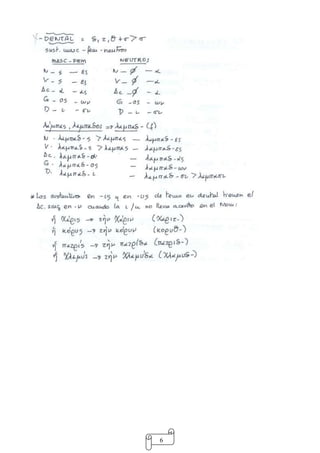 - DENTAL = δ, τ, θ + σ > σ
sust. masc - fem - neutros
MASC - FEM NEUTROS
N - s — ες N — ø — α
V - s — ες V — ø — α
Ac - α — ας Ac — ø — α
G - ος — ων G - ος — ων
D - ι — σι D - ι — σι
λαμπας, λαμπαδος => λαμπαδ- (ἡ)
N - λαμπαδ-ς > λαμπας — λαμπαδ-ες
V - λαμπαδ-ς > λαμπας — λαμπαδ-ες
Ac. λαμπαδ-α — λαμπαδ-ας
G - λαμπαδ-ος — λαμπαδ-ων
D. λαμπαδ-ι — λαμπαδ-σι > λαμπασι
* Los sustantivos en -ις y en -υς de tema en dental tienen el
Ac. sing en -ν cuando la ι / υ no lleva acento en el Nom:
ἡ χάρις → τὴν χάριν (χαριτ-)
ἡ κόρυς → τὴν κόρυν (κορυθ-)
ἡ πατρίς → τὴν πατρίδα (πατριδ-)
ἡ χλαμύς → τὴν χλαμύδα (χλαμυδ-)
6